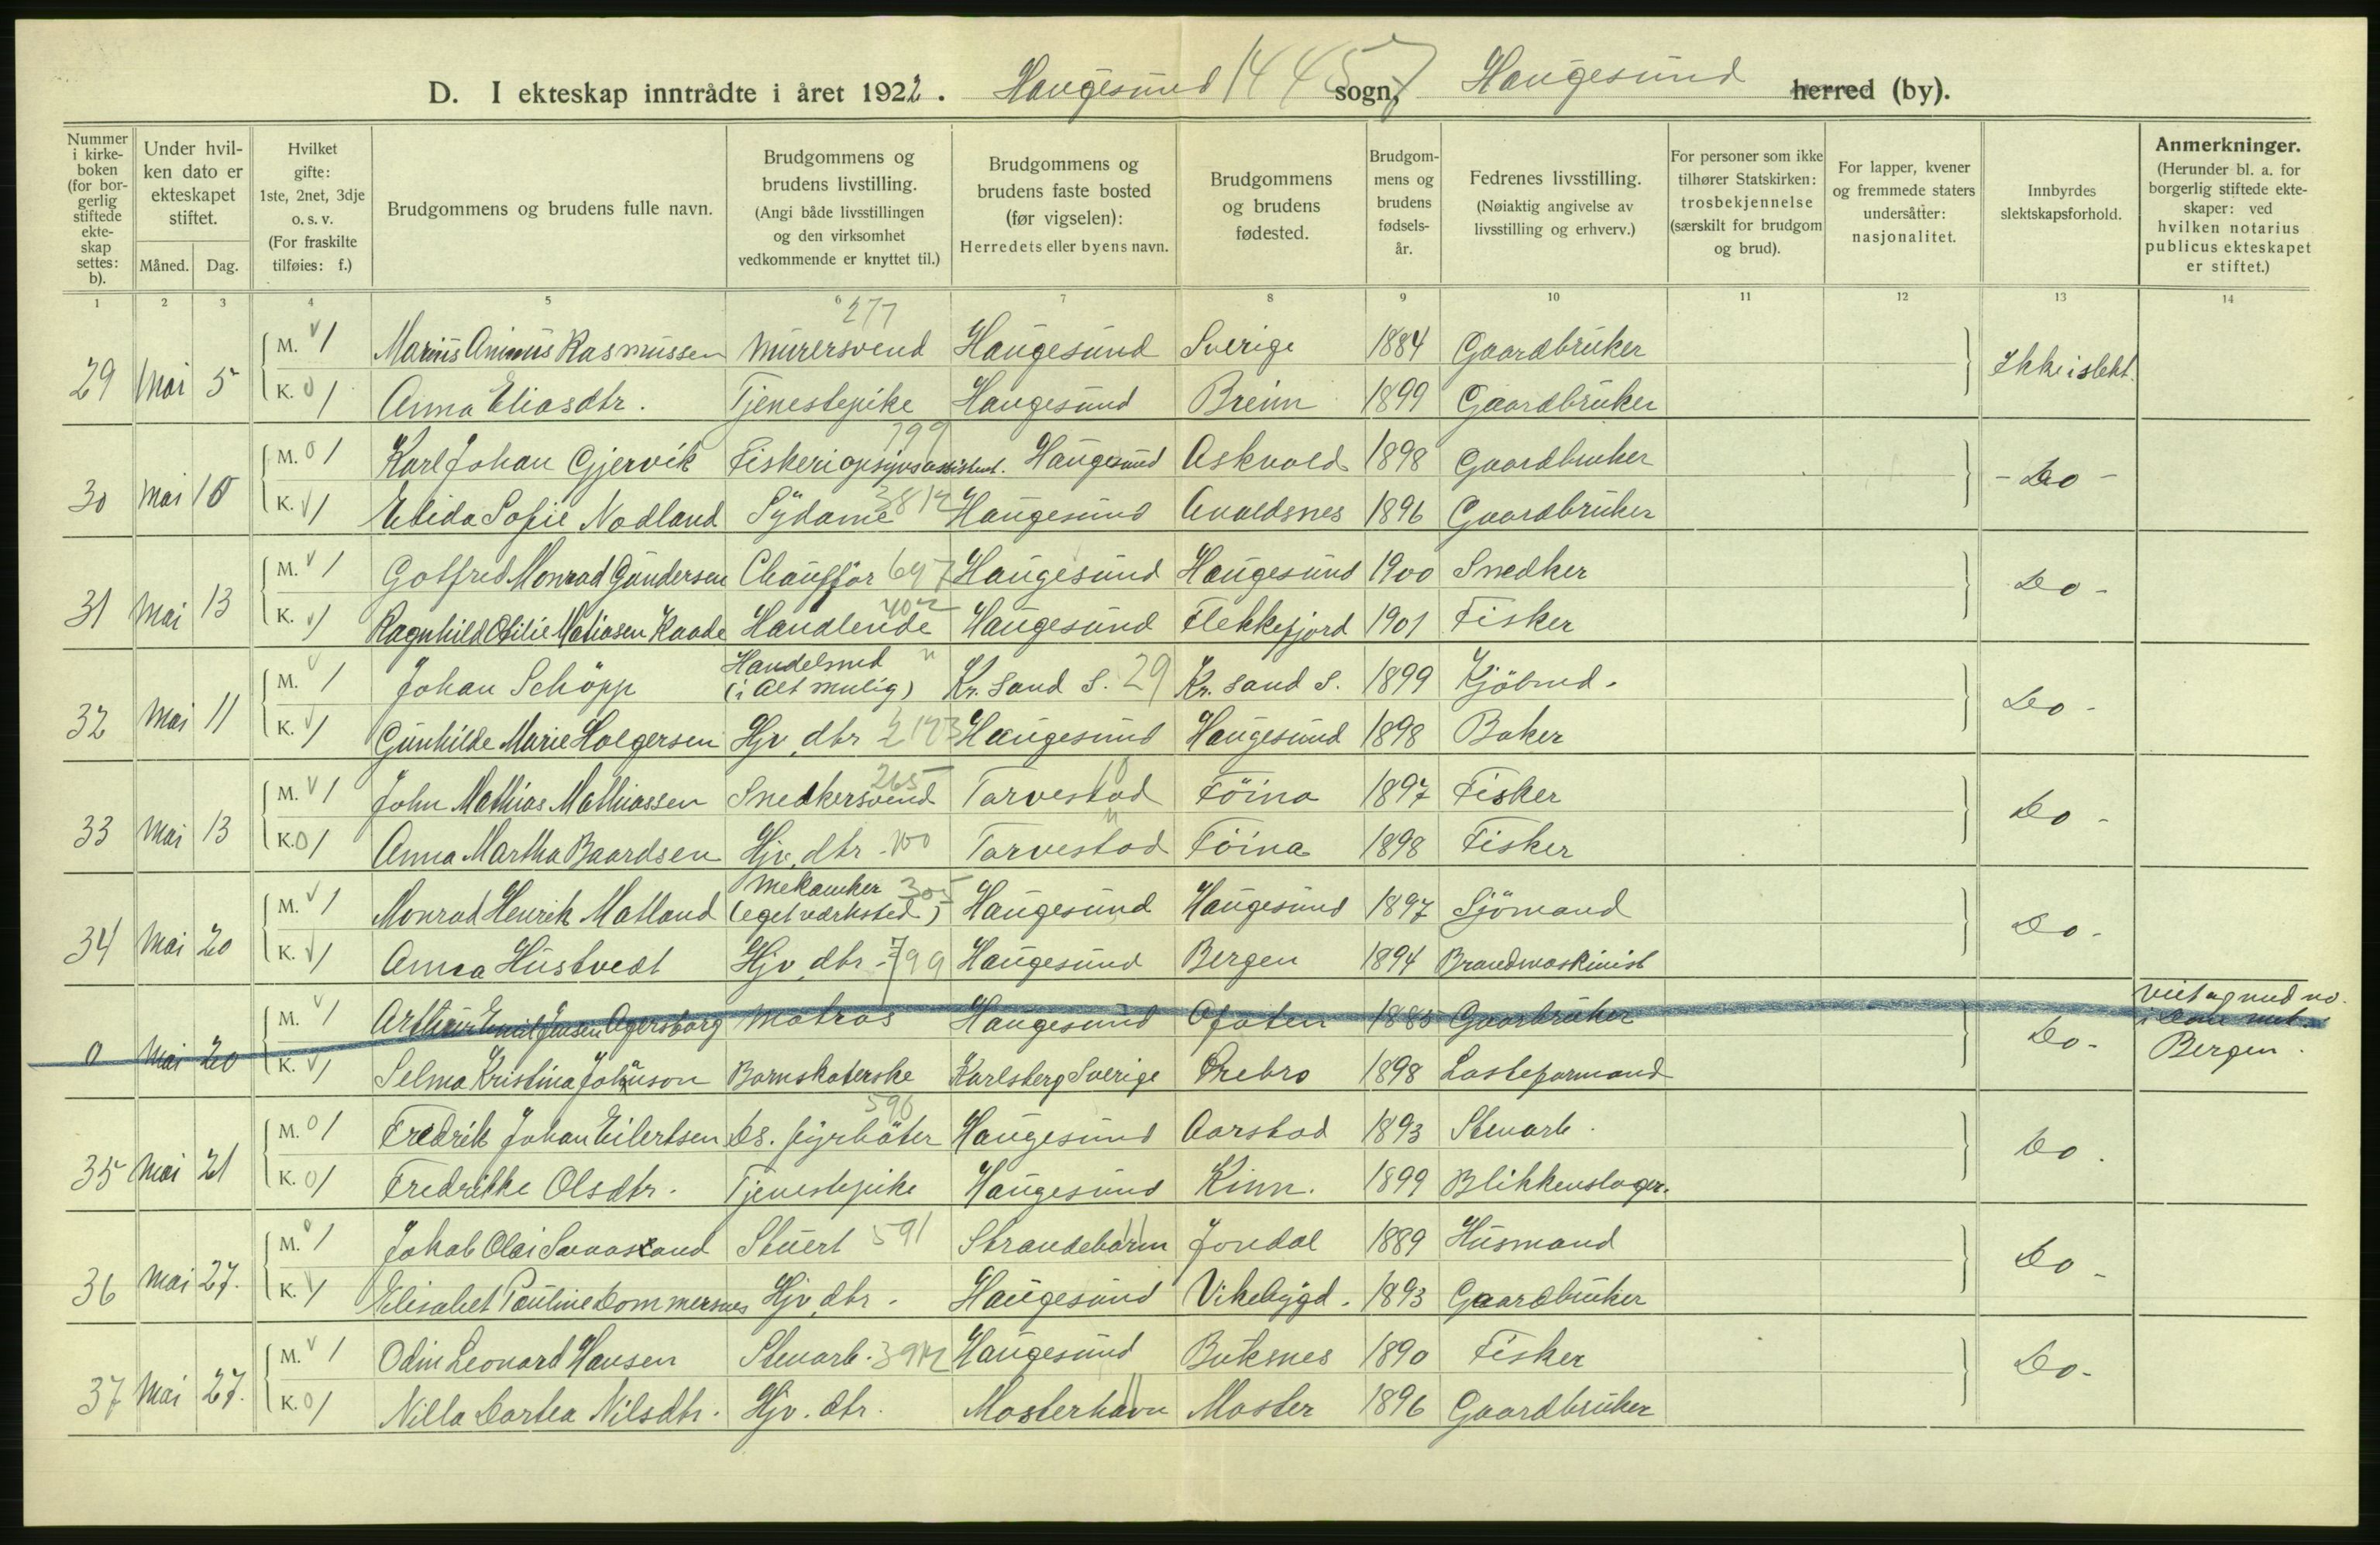 D. I ekteskap inntrådte i året 1922. Haugesund 14457 sogn, Haugesund herred (by).
Nummer i kirke-boken (for bor-gerlig stiftede ekte-skap settes: b).
Under hvil-ken dato er ekteskapet stiftet.
Måned. Dag.
Hvilket gifte: 1ste, 2net, 3dje o. s. v. (For fraskilte tilføies: f.)
Brudgommens og brudens fulle navn.
Brudgommens og brudens livstilling. (Angi både livsstillingen og den virksomhet vedkommende er knyttet til.)
Brudgommens og brudens faste bosted (før vigselen): Herredets eller byens navn.
Brudgommens og brudens fødested.
Brudgom-mens og brudens fødsels-år.
Fedrenes livsstilling. (Nøiaktig angivelse av livsstilling og erhverv.)
For personer som ikke tilhører Statskirken: trosbekjennelse (særskilt for brudgom og brud).
For lapper, kvener og fremmede staters undersåtter: nasjonalitet.
Innbyrdes slektskapsforhold.
Anmerkninger. (Herunder bl. a. for borgerlig stiftede ekte-skaper: ved hvilken notarius publicus ekteskapet er stiftet.)
1 2 3 4 5 6 7 8 9 10 11 12 13 14
277
M. 1 Marius Animus Rasmussen Murersvend Haugesund Sverige 1884 Gaardbruker
29 Mai 5 Ikke i slekt.
K. 1 Anna Eliasdtr. Tjenestepike Haugesund Breim 1899 Gaardbruker
799
M. 1 Karl Johan Gjervik Fiskeriopsynsassistent. Haugesund Askvold 1898 Gaardbruker
30 Mai 10 - Do -
K. 1 Elida Sofie Nodland Sydame Haugesund Avaldsnes 1896 Gaardbruker
M. 1 Gotfred Monrad Gundersen Chauffør 697 Haugesund Haugesund 1900 Snedker
31 Mai 13 Do -
K. 1 Ragnhild Otilie Matiasen Kaade Handlende Haugesund Flekkefjord 1901 Fisker
M. 1 Johan Schöpp Handelsmd (i Alt mulig) Kr. Sand S. 29 Kr. Sand S. 1899 Kjöbmd.
32 Mai 11 Do -
K. 1 Gunhilde Marie Holgersen Hjv. dtr Haugesund Haugesund 1898 Baker
265
M. 1 John Mathias Mathiassen Snedkersvend Torvestad Föina 1897 Fisker
33 Mai 13 Do -
K. 1 Anna Martha Baardsen Hjv. dtr - Torvestad Föina 1898 Fisker
M. 1 Monrad Henrik Matland Mekaniker (eget værksted) 305 Haugesund Haugesund 1897 Sjömand
34 Mai 20 Do -
K. 1 Anna Hustvedt Hjv. dtr - 799 Haugesund Bergen 1894 Brandmaskinist
M. 1 Arthur Emil Jensen Agersborg Matros Haugesund Ofoten 1885 Gaarbruker
0 Mai 20 Do -
K. 1 Selma Kristina Johnson Barnskoterske Karlsberg Sverige Örebro 1898 Lasteformand
Bergen.
596
M. 1 Fredrik Johan Eilertsen Ds. fyrböter Haugesund Aarstad 1893 Stenarb.
35 Mai 21 Do.
K. 1 Fredrikke Olsdtr. Tjenestepike Haugesund Kinn. 1899 Blikkenslager.
M. 1 Jakob Olai Sanvasxand Stuert 591 Strandebarm Jondal 1889 Husmand
36 Mai 27. Do -
K. 1 Elisabet Pauline Dommersnes Hjv. dtr. Haugesund Vikebygd. 1893 Gaardbruker
M. 1 Odin Leonard Hansen Stenarb. Haugesund Buksnes 1890 Fisker
37 Mai 27. Do -
K. 1 Nilla Dortea Nilsdtr. Hjv. dtr. Mosterhavn Moster 1896 Gaardbruker